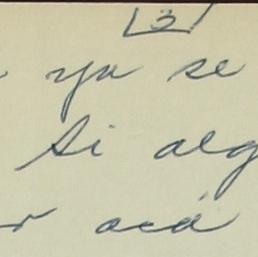 3
ya se
Si alg
r acá